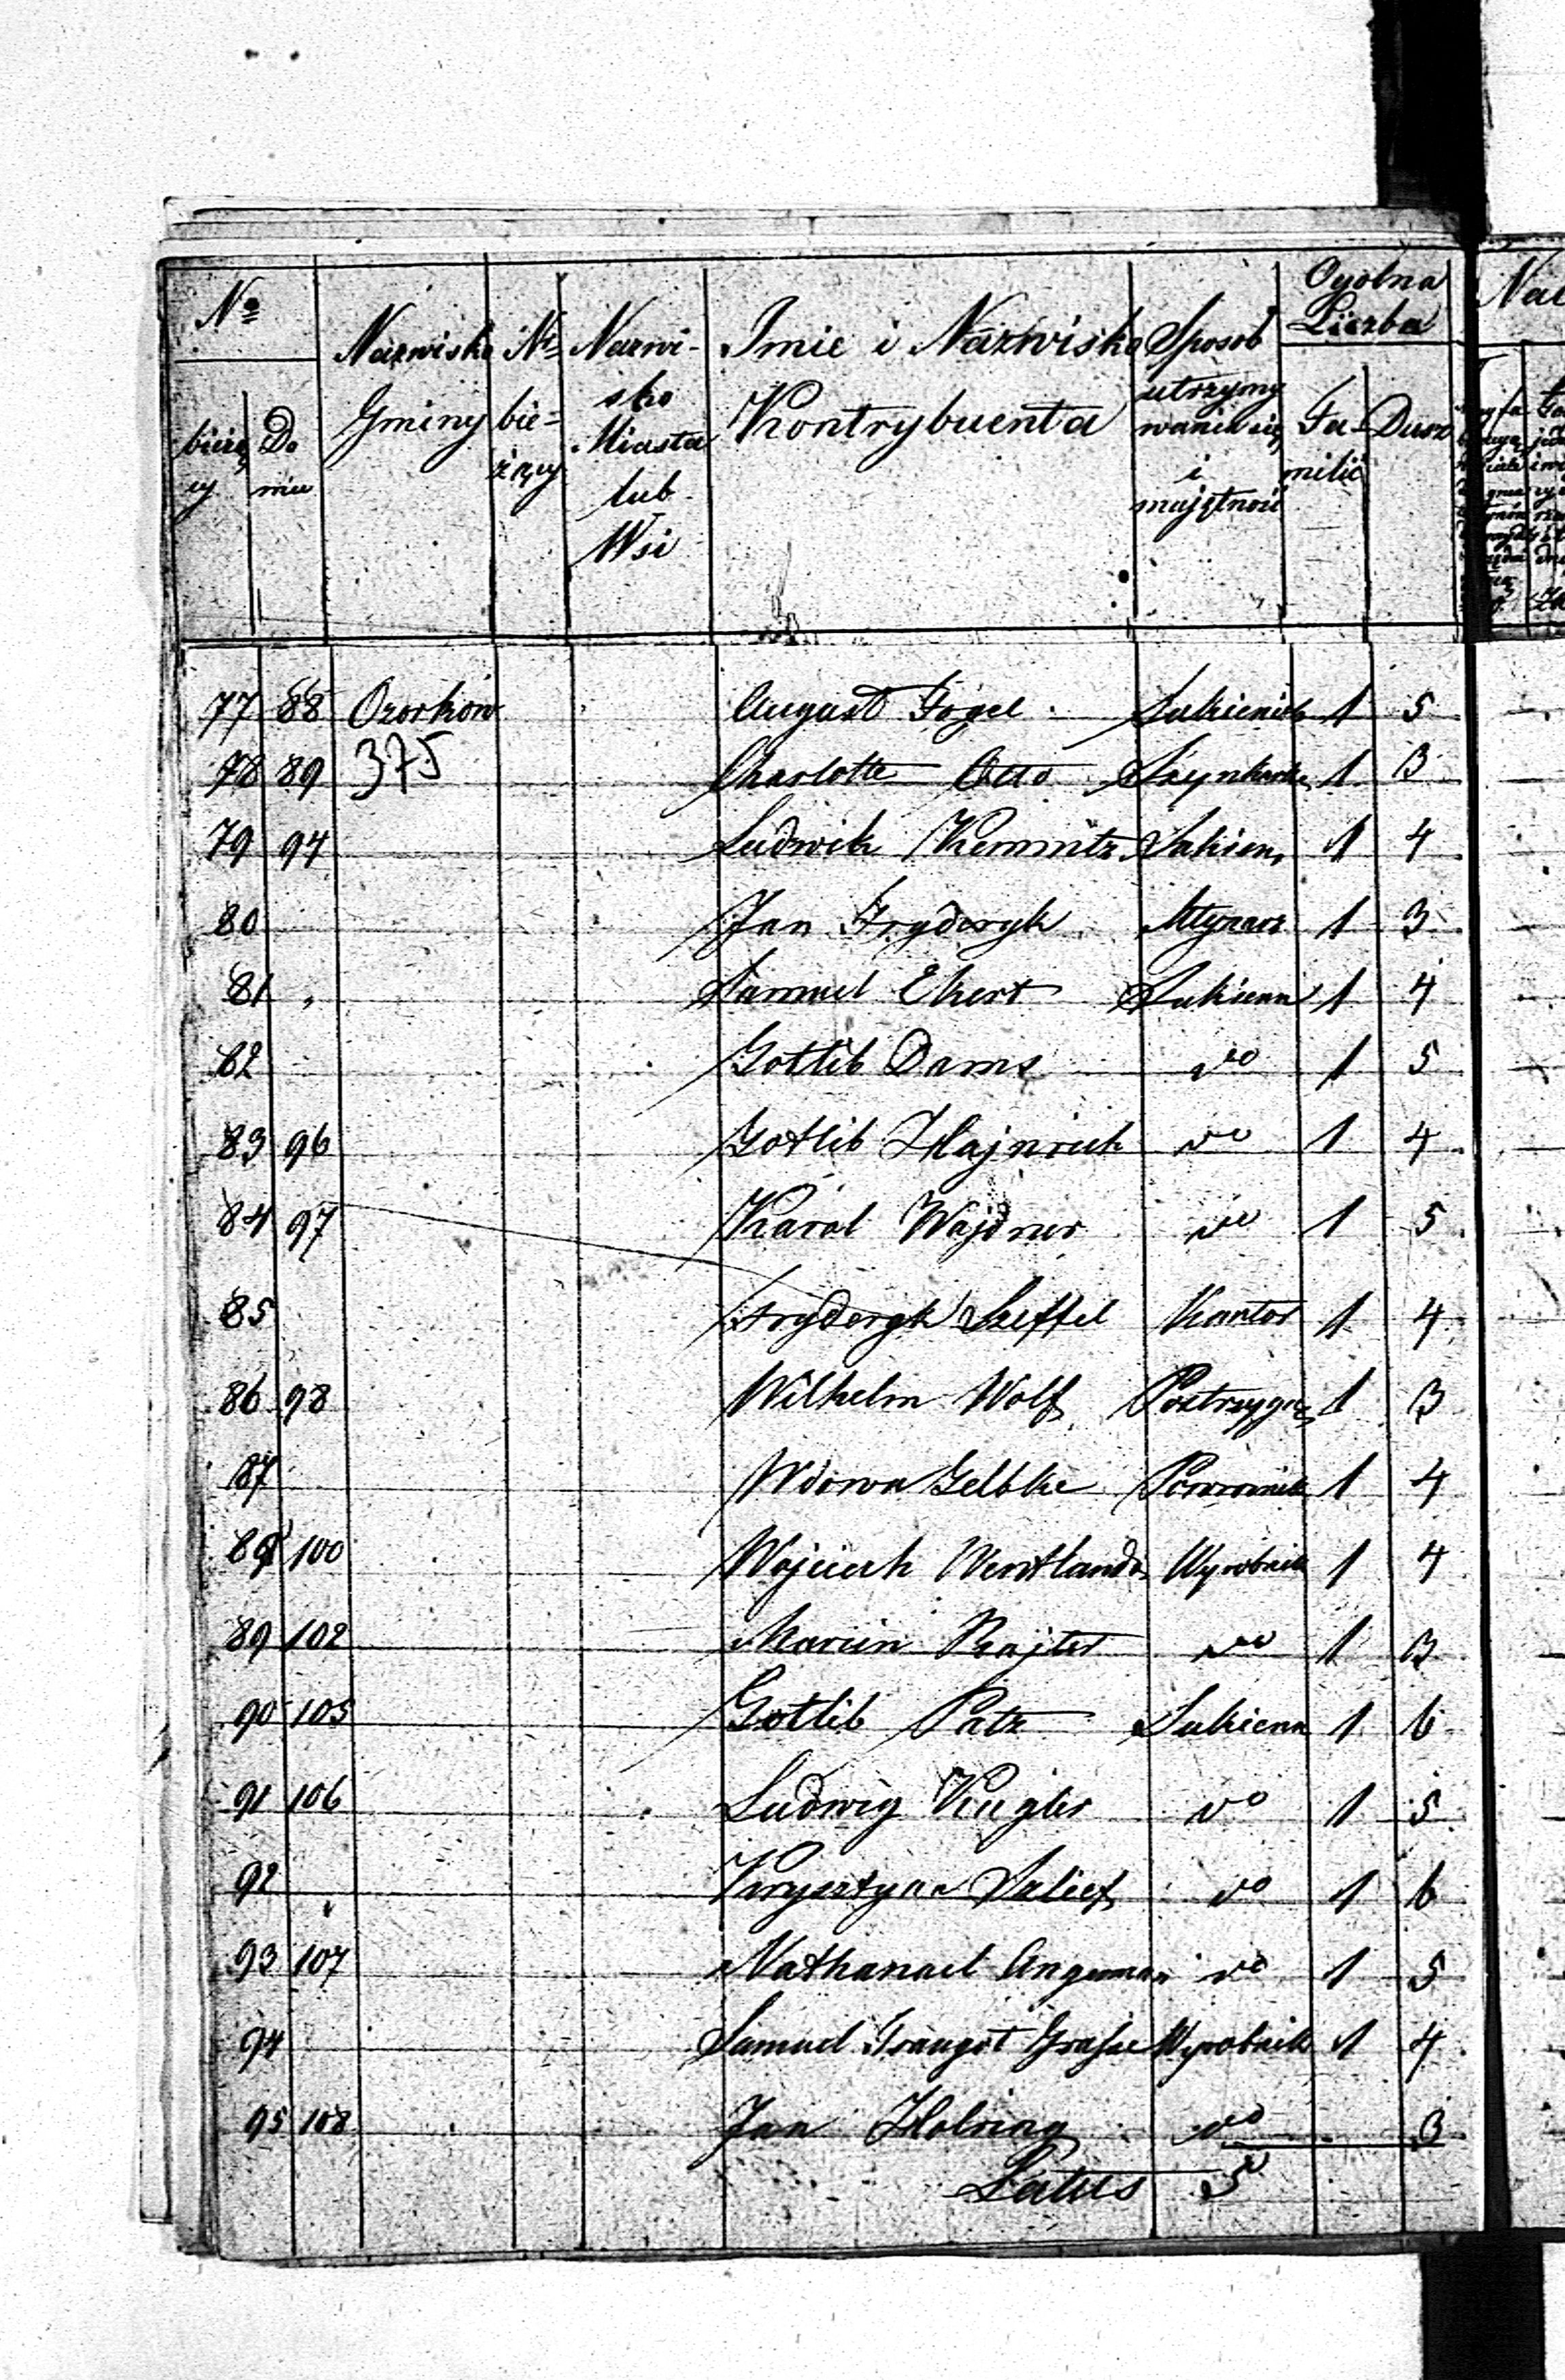 No
bieżą
cy
Do
mu
Nazwisko
Gminy
No
bie=
żący
Nazwi-
sko
Miasta
lub
Wsi
Imie i Nazwisko
Kontrybuenta
Sposob
utrzymy
wania się
i
majętność
Ogolna
Liczba
Fa-
milii
Dusz
77 88 Ozorkow August Fogel Sukiennik 1 5
78 89 375 Charlotte Otto Szynkarka 1 3
79 94 Ludwik Kemnitz Sukien 1 4
80 Jan Frydergk Młynarz 1 3
81 " Samuel Ekert Sukienn 1 4
82 Gottlib Dams do 1 5
83 96 Gotlib Hajnrich do 1 4
84 97 Karol Wajdner do 1 5
85 Frydergk Szeffel Kantor 1 4
86 98 Wilhelm Wolf Postrzygacz 1 3
87 Wdowa Gelbke Powroznik 1 4
88 100 Wojciech Wentland Wyrobnik 1 4
89 102 Marcin Rajter do 1 3
90 105 Gotlib Patz Sukienn 1 6
91 106 Ludwig Kugler do 1 5
92 " Krysztyan Szlief do 1 6
93 107 Nathanael Angerman do 1 5
94 Samuel Traugot Grasse Wyrobnik 1 4
95 108 Jan Holring do 3
Latus 5